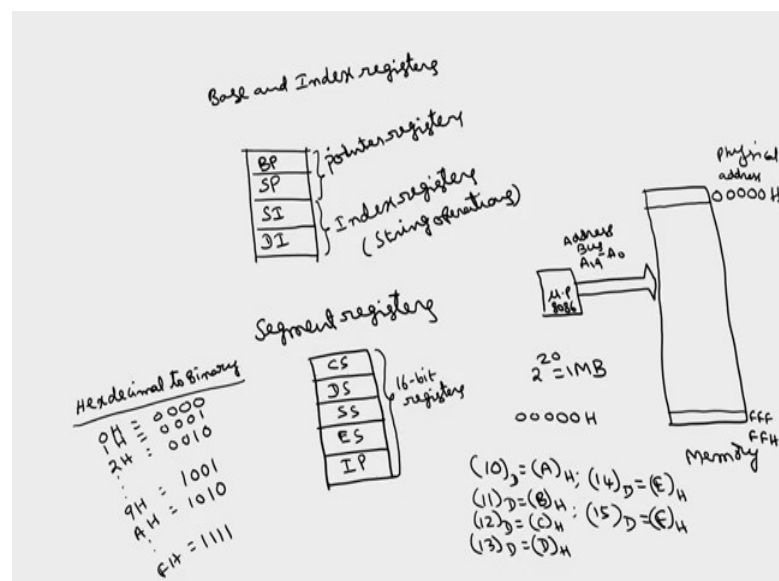 Base and Index registers
BP
SP
SI
DI
pointer registers
Index registers
(String operations)
Segment registers
CS
DS
SS
ES
IP
16-bit
registers
Hexdecimal to Binary
0H = 0000
1H = 0001
2H = 0010
:
9H = 1001
AH = 1010
:
FH = 1111
Physical
address
00000H
Address
Bus
A19-A0
μ.P
8086
2^20 = 1MB
00000H
FFF
FFH
Memory
(10)D = (A)H ; (14)D = (E)H
(11)D = (B)H ; (15)D = (F)H
(12)D = (C)H
(13)D = (D)H